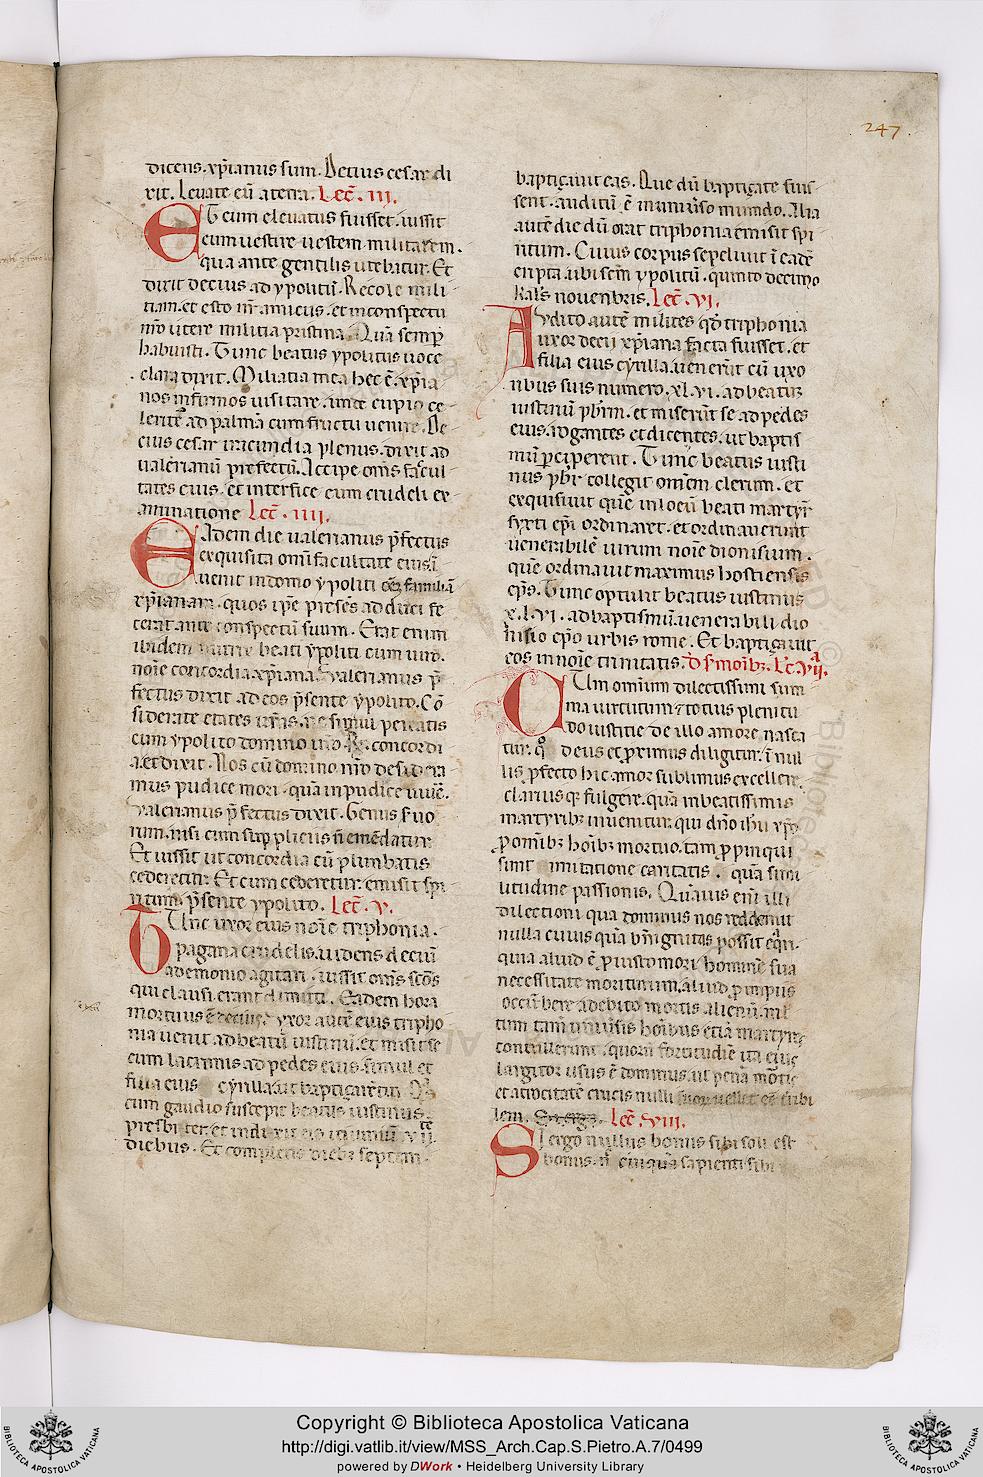 247
dicens. xp̃ianus sum. Decius cesar di
xit. Levate eũ a terra. Lec̃. III.
Et cum elevatus fuisset. iussit
eum vestire vestem militarem.
qua ante gentilis utebatur. Et
dixit decius ad ypolitũ. Recole mili
tiam. et esto nr̃ amicus. et in conspectu
nr̃o utere militia pristina. Quã semp̃
habuisti. Tunc beatus ypolitus voce
clara dixit. Militia mea hec ẽ. xp̃ia
nos infirmos visitare. unde cupio ce
leritẽ ad palmã cum fructu venire. De
cius cesar iracundia plenus. dixit ad
valerianũ prefectũ. Accipe om̃s facul
tates eius. et interfice eum crudeli ex
aminatione Lec̃. IIII.
Eadem die valerianus p̃fectus
exquisita om̃i facultate eius.
venit in domo ypoliti familiã
xp̃ianam. quos ip̃e preses adduci fe
cerat ante conspectũ suum. Erat enim
ibidem nutrix beati ypoliti cum viro.
noĩe concordia xp̃iana. Valerianus p̃
fectus dixit ad eos p̃sente ypolito. Cõ
siderate etates vr̃as. ne simul pereatis
cum ypolito domino vr̃o. R̃. concordi
a. et dixit. Nos cũ domino nr̃o desidera
mus pudice mori. quã inpudice vivẽ.
Valerianus p̃fectus dixit. Genus s̃vo
rum. nisi cum suppliciis ñ emẽdatur.
Et iussit ut concordia cũ plumbatis
cederetur. Et cum cederetur. emisit spi
ritum. p̃sente ypolito. Lec̃. V.
Tunc uxor eius noĩe triphonia.
pagana crudelis. videns deciũ
a demonio agitari. iussit om̃s sc̃os
qui clausi erant dimitti. Eadem hora
mortuus ẽ decius. Uxor autẽ eius tripho
nia venit ad beatũ iustinũ. et misit se
cum lacrimis ad pedes eius. simul et
filia eius cyrilla. ut baptiçarẽtur.
cum gaudio suscepit beatus iustinus
presbiter. et indixit eis ieiuniũ VII
diebus. Et completis dieb; septem.
baptiçavit eas. Que dũ baptiçate fuis
sent. auditũ ẽ in univ̉so mundo. Alia
autẽ die dũ orat triphonia emisit spi
ritum. Cuius corpus sepelivit ĩ eadẽ
cripta. ubi sc̃m ypolitũ. quinto decimo
kal̃s novenbris. Lec̃. VI.
Audito autẽ milites qđ triphonia
uxor decii xp̃iana facta fuisset. et
filia eius cyrilla. venerũt cũ uxo
ribus suis numero. XL.VI. ad beatũ
iustinũ pb̃rm. et miserũt se ad pedes
eius. rogantes et dicentes. ut baptis
mũ p̃ciperent. Tunc beatus iusti
nus pb̃r collegit om̃em clerum. et
exquisivit quẽ in locũ beati martyr̃
syxti ep̃i ordinaret. et ordinaverunt
venerabilẽ virum noĩe dionisium.
quẽ ordinavit maximus hostiensis
ep̃s. Tunc optulit beatus iustinus
X.L.VI. ad baptismũ. venerabili dio
nisio ep̃o urbis rome. Et baptiçavit
eos in noĩe trinitatis. Lec̃. VII.
Cum omnium dilectissimi sum
ma virtutum ⁊ totius plenitu
do iustitie de illo amore nasca
tur. q̃ deus et proximus diligitur. ĩ nul
lis p̃fecto hic amor sublimius excellere.
clarius q; fulgere. quã in beatissimis
martyrib; invenitur. qui dño ih̃u xp̃o
p̃ om̃ib; hoĩb; mortuo. tam p̃pinqui
sunt imitatione caritatis. quã simi
litudine passionis. Quãvis eñi illi
dilectioni qua dominus nos redemit
nulla cuius quã b̃nignitas possit eq̃ri.
quia aliud ẽ p̃ iusto mori hominẽ sua
necessitate moriturum. aliud p̃ impiis
occũbere a debito mortis alienũ. ml̃
tum tam̃ univ̉sis hoĩbus etiã martyres
contulerunt. quorũ fortitudiẽ ita eius
largitor usus ẽ dominus. ut penã mortis
et atrocitatẽ crucis nulli suorũ vellet eẽ t̃ribi
lem. Lec̃. VIII.
Si ergo nullus bonus sibi soli est
bonus. ñ cuiusquã sapientis sibi
Copyright © Biblioteca Apostolica Vaticana
http://digi.vatlib.it/view/MSS_Arch.Cap.S.Pietro.A.7/0499
powered by DWork • Heidelberg University Library
BIBLIOTECA APOSTOLICA VATICANA
BIBLIOTECA APOSTOLICA VATICANA